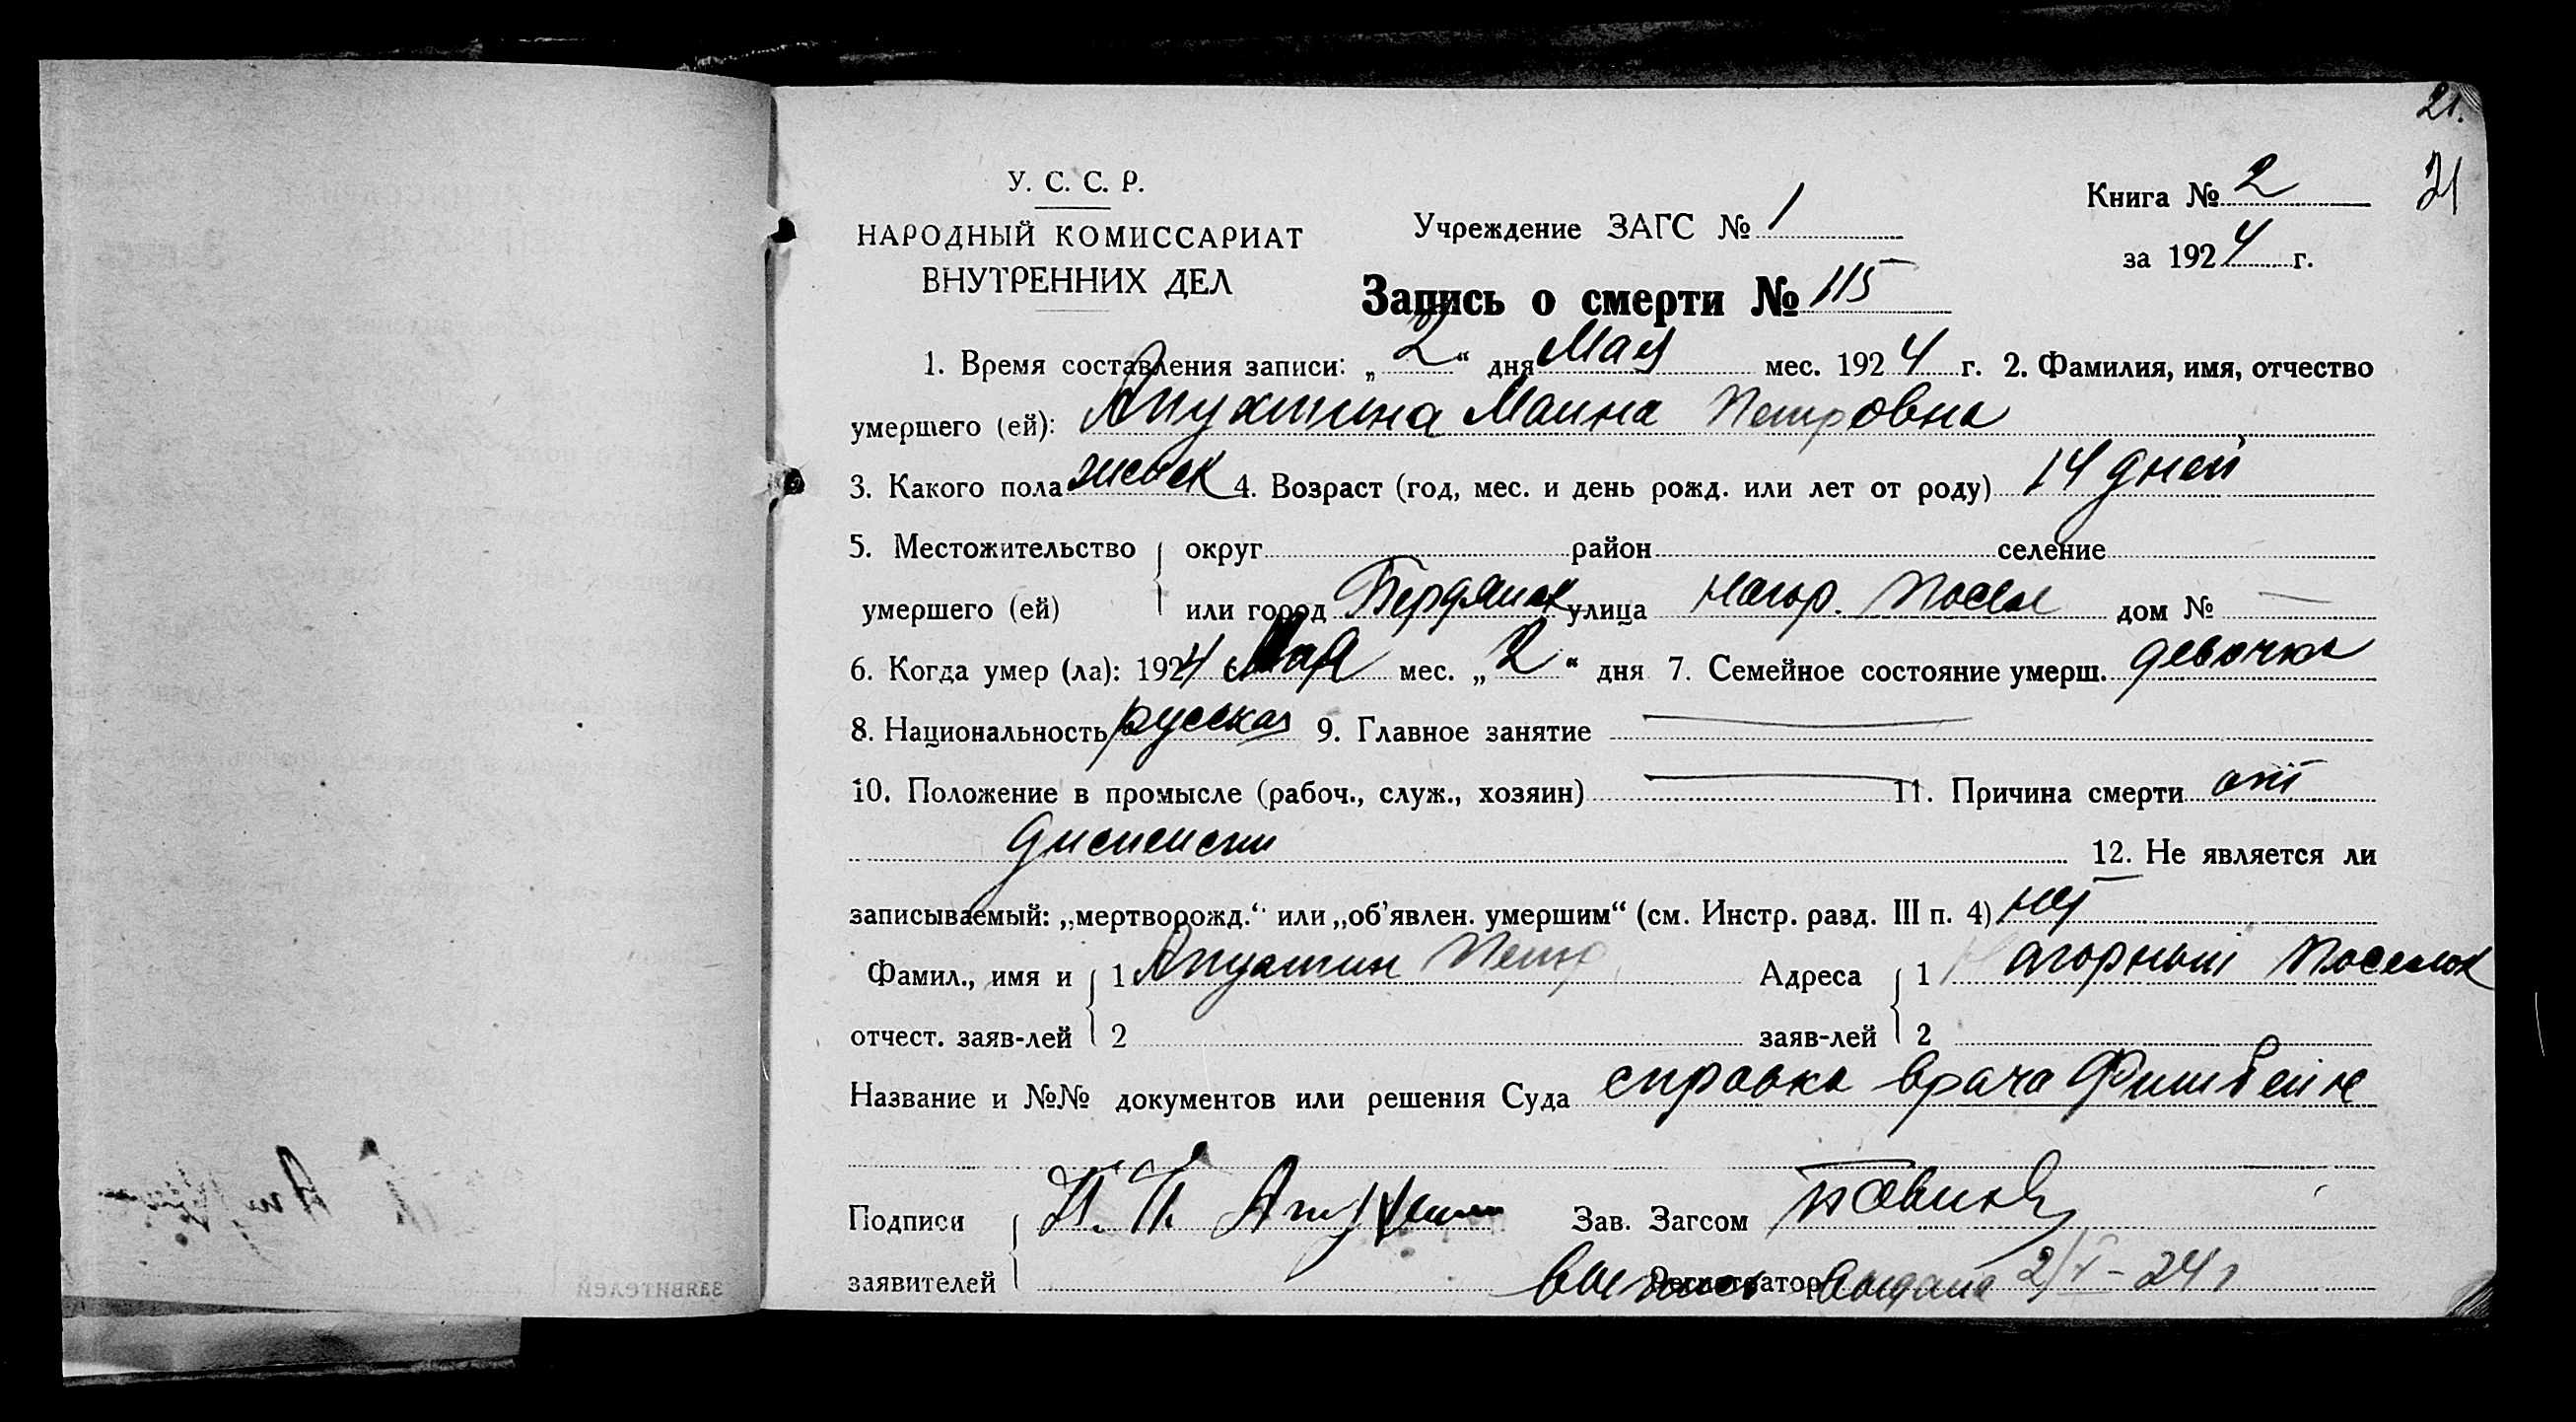 21.
21
У. С. С. Р.
НАРОДНЫЙ КОМИССАРИАТ
ВНУТРЕННИХ ДЕЛ
Учреждение ЗАГС № 1
Книга № 2
за 1924 г.
Запись о смерти № 115
1. Время составления записи: „2“ дня Мая мес. 1924 г. 2. Фамилия, имя, отчество
умершего (ей): Апухтина Маина Петровна
3. Какого пола женск 4. Возраст (год, мес. и день рожд. или лет от роду) 14 дней
5. Местожительство округ район селение
умершего (ей) или город Бердянск улица Нагор. Посел дом № —
6. Когда умер (ла): 1924 Мая мес. „2“ дня 7. Семейное состояние умерш. девочка
8. Национальность русская 9. Главное занятие —
10. Положение в промысле (рабоч., служ., хозяин) — 11. Причина смерти от
диспепсии 12. Не является ли
записываемый: „мертворожд.“ или „об'явлен. умершим“ (см. Инстр. разд. III п. 4) нет
Фамил., имя и 1 Апухтин Петр Адреса 1 Нагорный Поселок
отчест. заяв-лей 2 заяв-лей 2
Название и №№ документов или решения Суда справка врача Фишбейне
Подписи П. Апухтин Зав. Загсом
заявителей Регистратор выпись выдана 2/V–24 г
заявителей